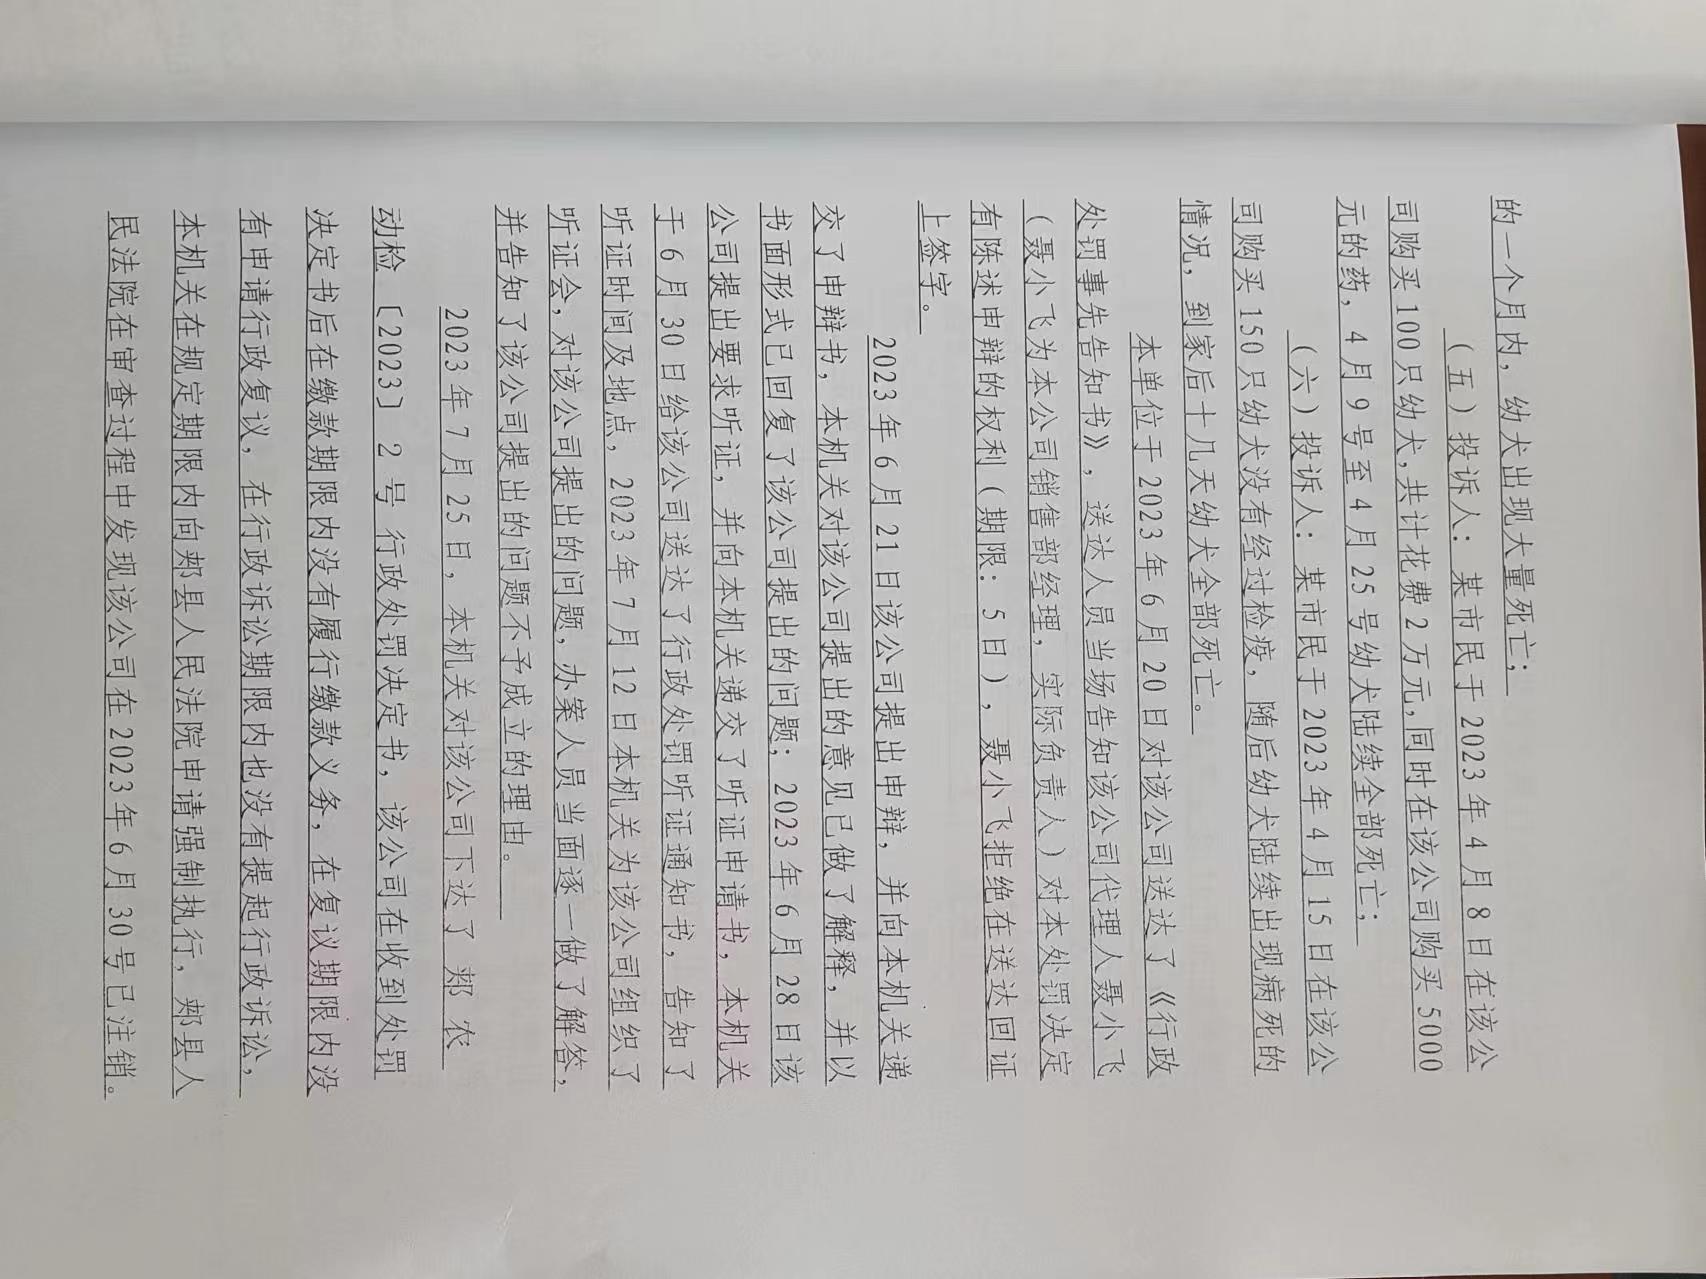 的一个月内，幼犬出现大量死亡；
（五）投诉人：某市民于2023年4月8日在该公
司购买100只幼犬,共计花费2万元,同时在该公司购买5000
元的药，4月9号至4月25号幼犬陆续全部死亡；
（六）投诉人：某市民于2023年4月15日在该公
司购买150只幼犬没有经过检疫，随后幼犬陆续出现病死的
情况，到家后十几天幼犬全部死亡。
本单位于2023年6月20日对该公司送达了《行政
处罚事先告知书》，送达人员当场告知该公司代理人聂小飞
（聂小飞为本公司销售部经理，实际负责人）对本处罚决定
有陈述申辩的权利（期限：5日），聂小飞拒绝在送达回证
上签字。
2023年6月21日该公司提出申辩，并向本机关递
交了申辩书，本机关对该公司提出的意见已做了解释，并以
书面形式已回复了该公司提出的问题；2023年6月28日该
公司提出要求听证，并向本机关递交了听证申请书，本机关
于6月30日给该公司送达了行政处罚听证通知书，告知了
听证时间及地点，2023年7月12日本机关为该公司组织了
听证会，对该公司提出的问题，办案人员当面逐一做了解答，
并告知了该公司提出的问题不予成立的理由。
2023年7月25日，本机关对该公司下达了 郏 农
动检 〔2023〕 2 号 行政处罚决定书，该公司在收到处罚
决定书后在缴款期限内没有履行缴款义务，在复议期限内没
有申请行政复议，在行政诉讼期限内也没有提起行政诉讼，
本机关在规定期限内向郏县人民法院申请强制执行，郏县人
民法院在审查过程中发现该公司在2023年6月30号已注销。